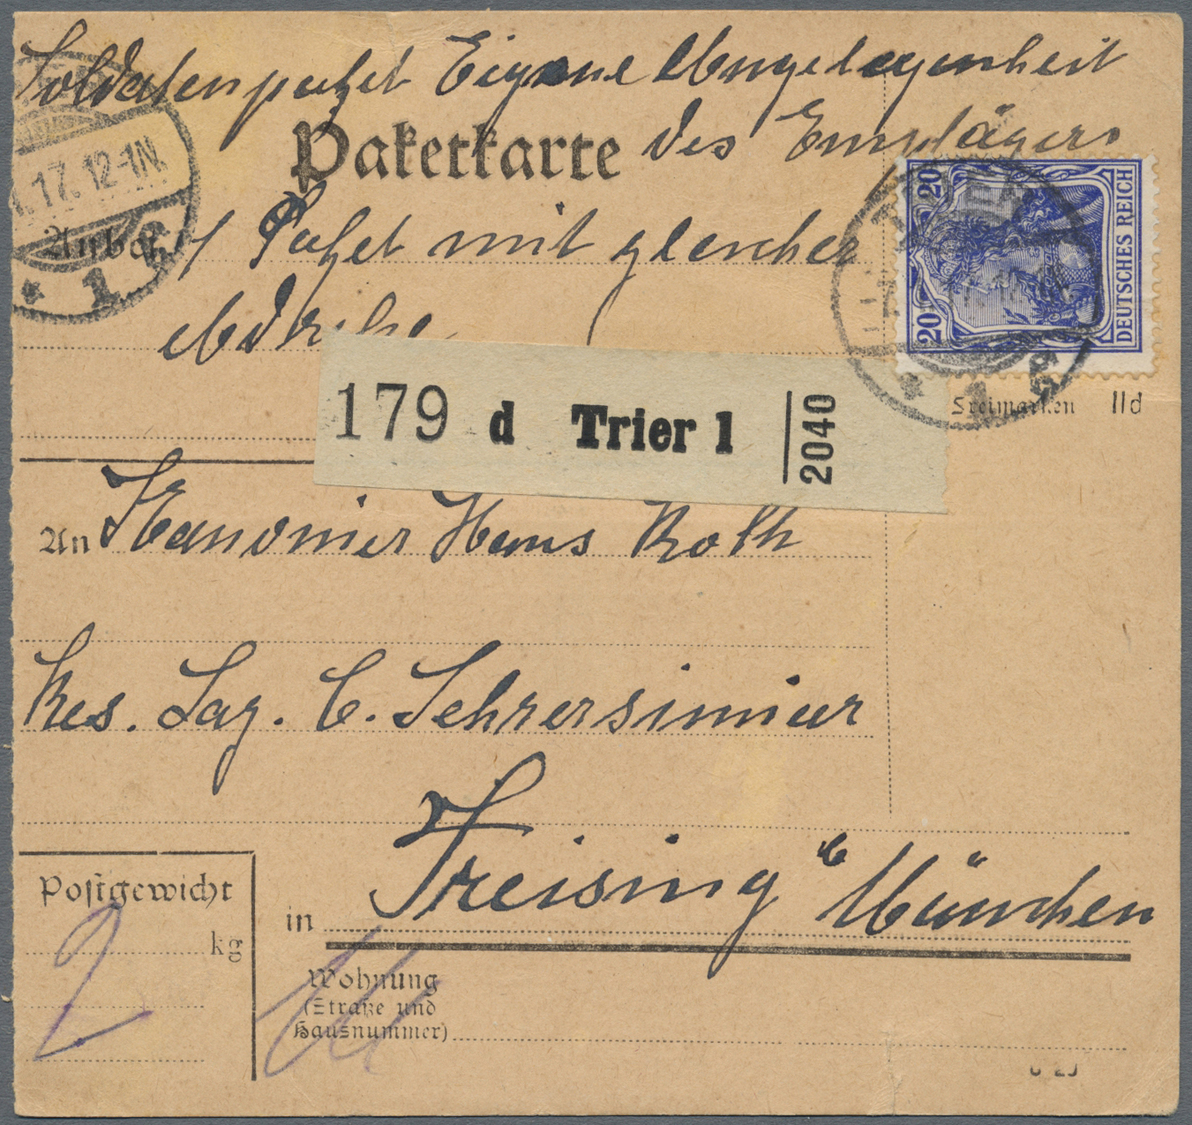 Soldatenpaket Eigene Angelegenheit
des Empfägers
Paketkarte
17. 12-1N.
* 1
Anbei / Paket mit gleicher
Adresse
20 20
DEUTSCHES REICH
* 1
Freimarken IId
179 d Trier 1 2040
An Kanonier Hans Roth
Res. Laz. C.
in Freising b München
Postgewicht
2 kg
Wohnung
(Straße und
Hausnummer)